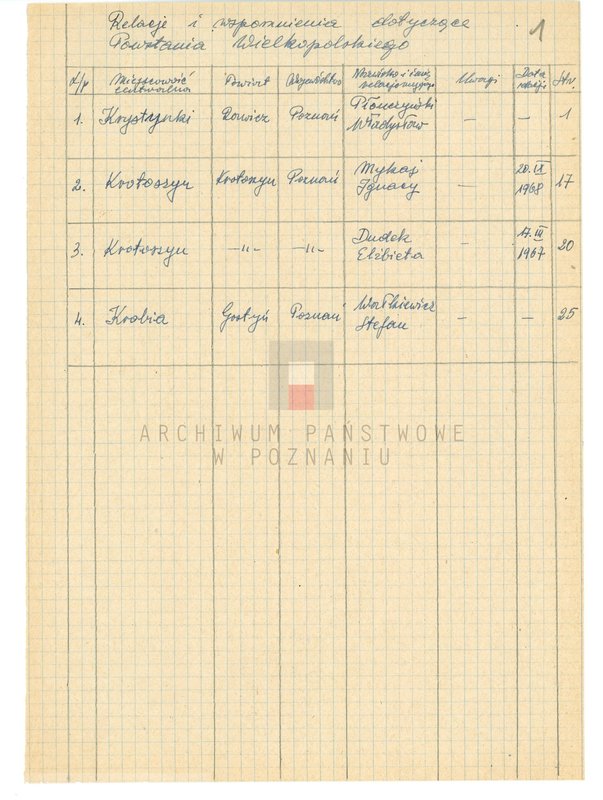 Relacje i wspomnienia dotyczące 1
Powstania Wielkopolskiego
L/p Miejscowość centralna Powiat Województwo Nazwisko i imię relacjonującego Uwagi Data relacji Str.
1. Krystynki Rawicz Poznań Płończyński Władysław — — 1
2. Krotoszyn Krotoszyn Poznań Mykaj Ignacy — 20.IX 1968 17
3. Krotoszyn —„— —„— Dudek Elżbieta — 17.III 1967 20
4. Krobia Gostyń Poznań Stefan — — 25
ARCHIWUM PAŃSTWOWE
W POZNANIU